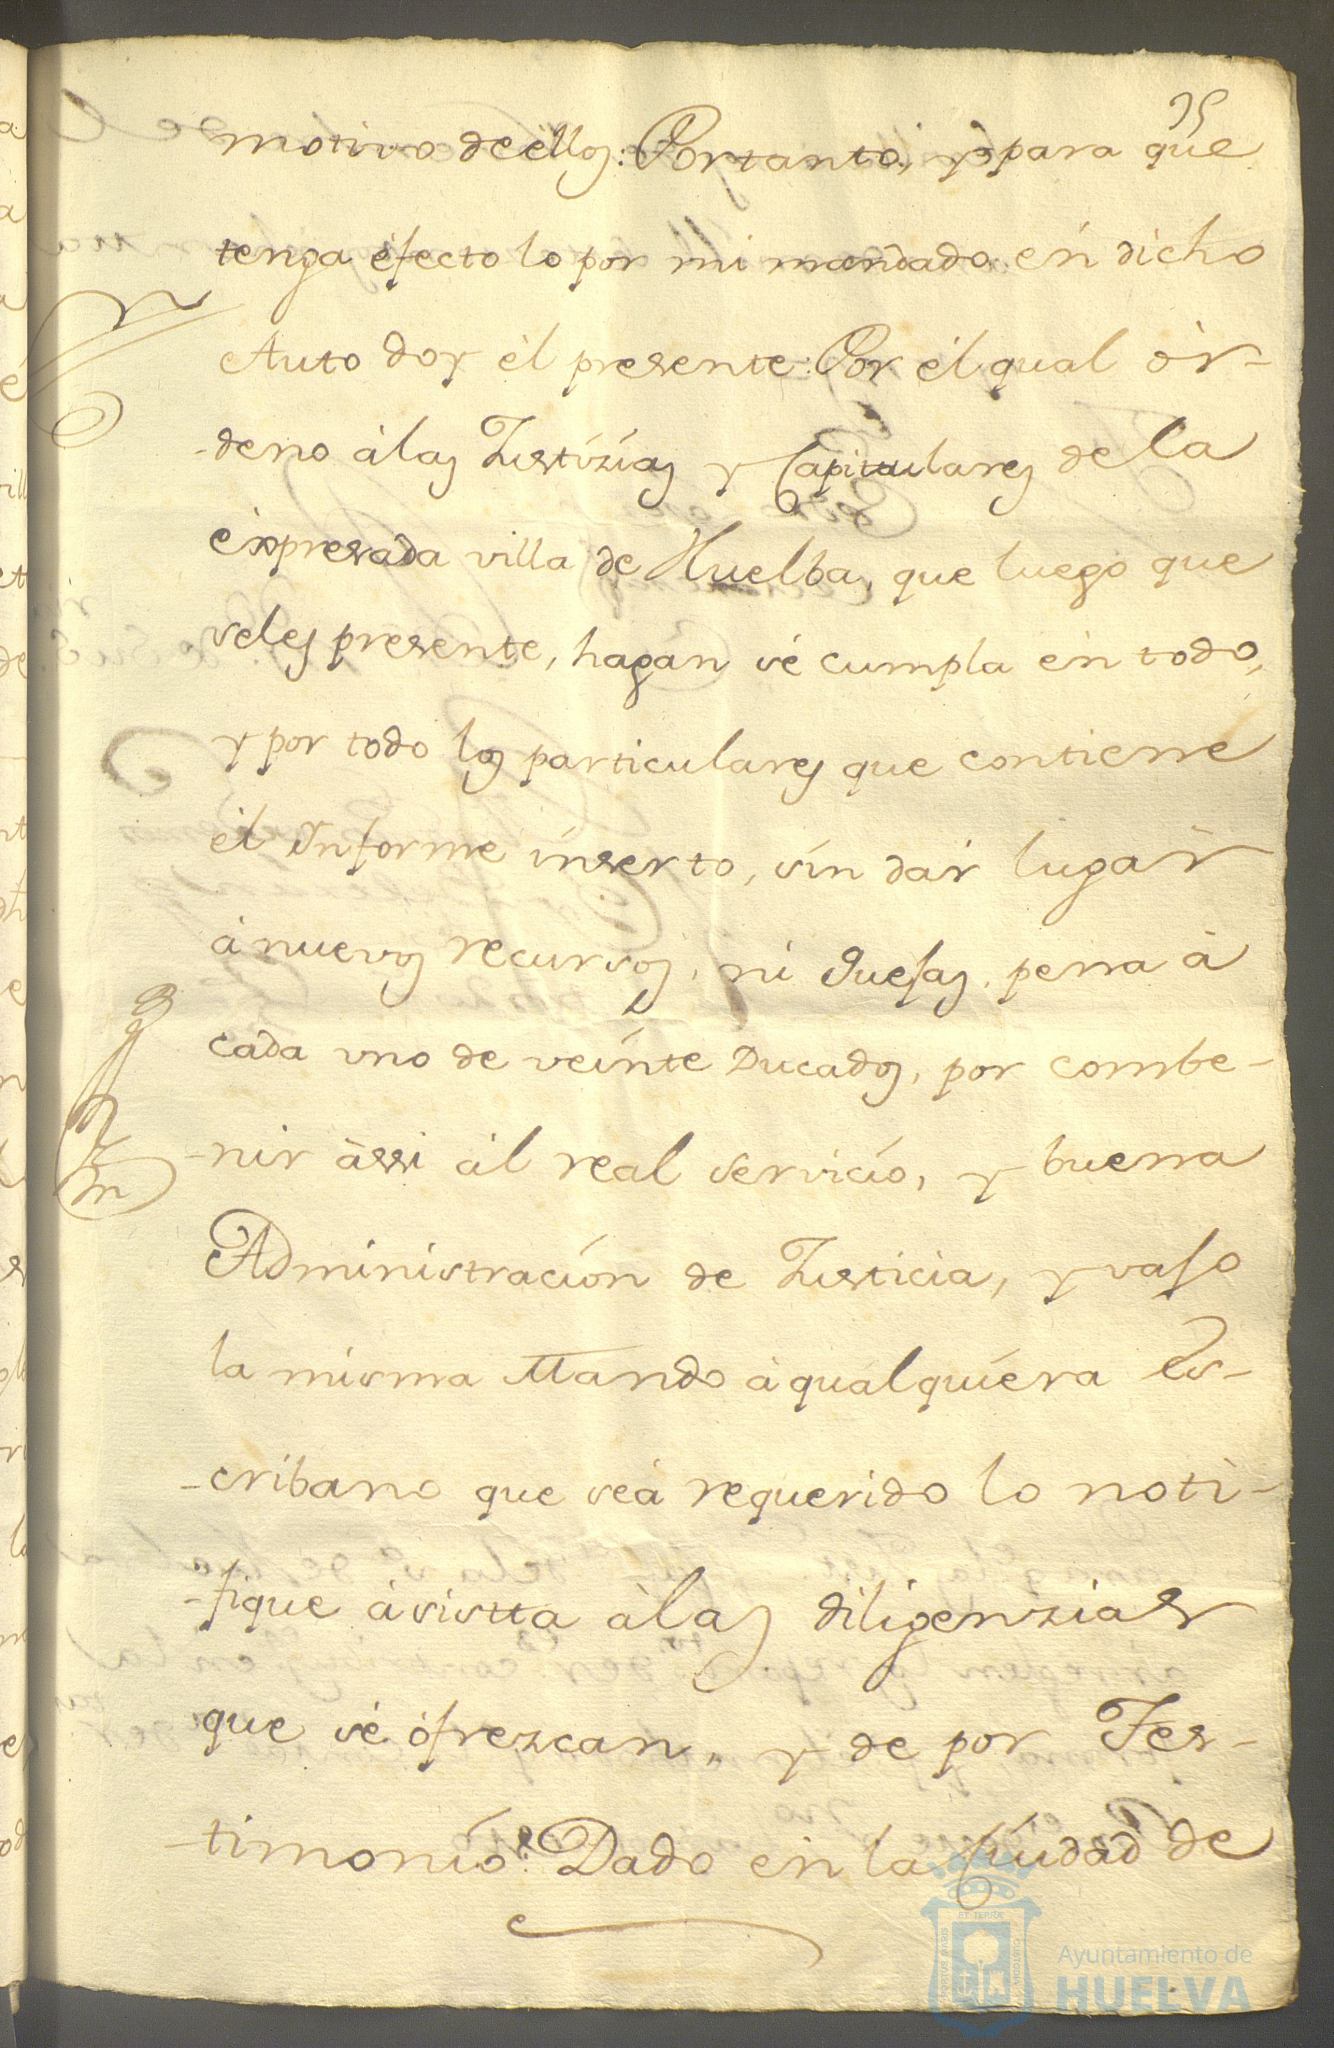 motivo de éllos: Portanto, y para que
tenga éfecto lo por mi mandado én dicho
Auto doy él presente: Por él qual ór-
-deno á las Justizias y Capitulares de la
éxpresada villa de Huelba, que luego que
seles presente, hagan sé cumpla én todo,
y por todo los particulares que contiene
él Informe inserto, sin dar lugar
á nuevos recursos, ni Quejas, pena á
cada uno de veinte Ducados, por combe-
-nir ássi ál real servicio, y buena
Administracion de Justicia, y vajo
la misma Mando á qualquiera Es-
-cribano que seá requerido lo noti-
-fique ásistta á las diligenzias
que sé ófrezcan, y de por Tes-
-timonio: Dado en la Ciudad de
Ayuntamiento de
HUELVA